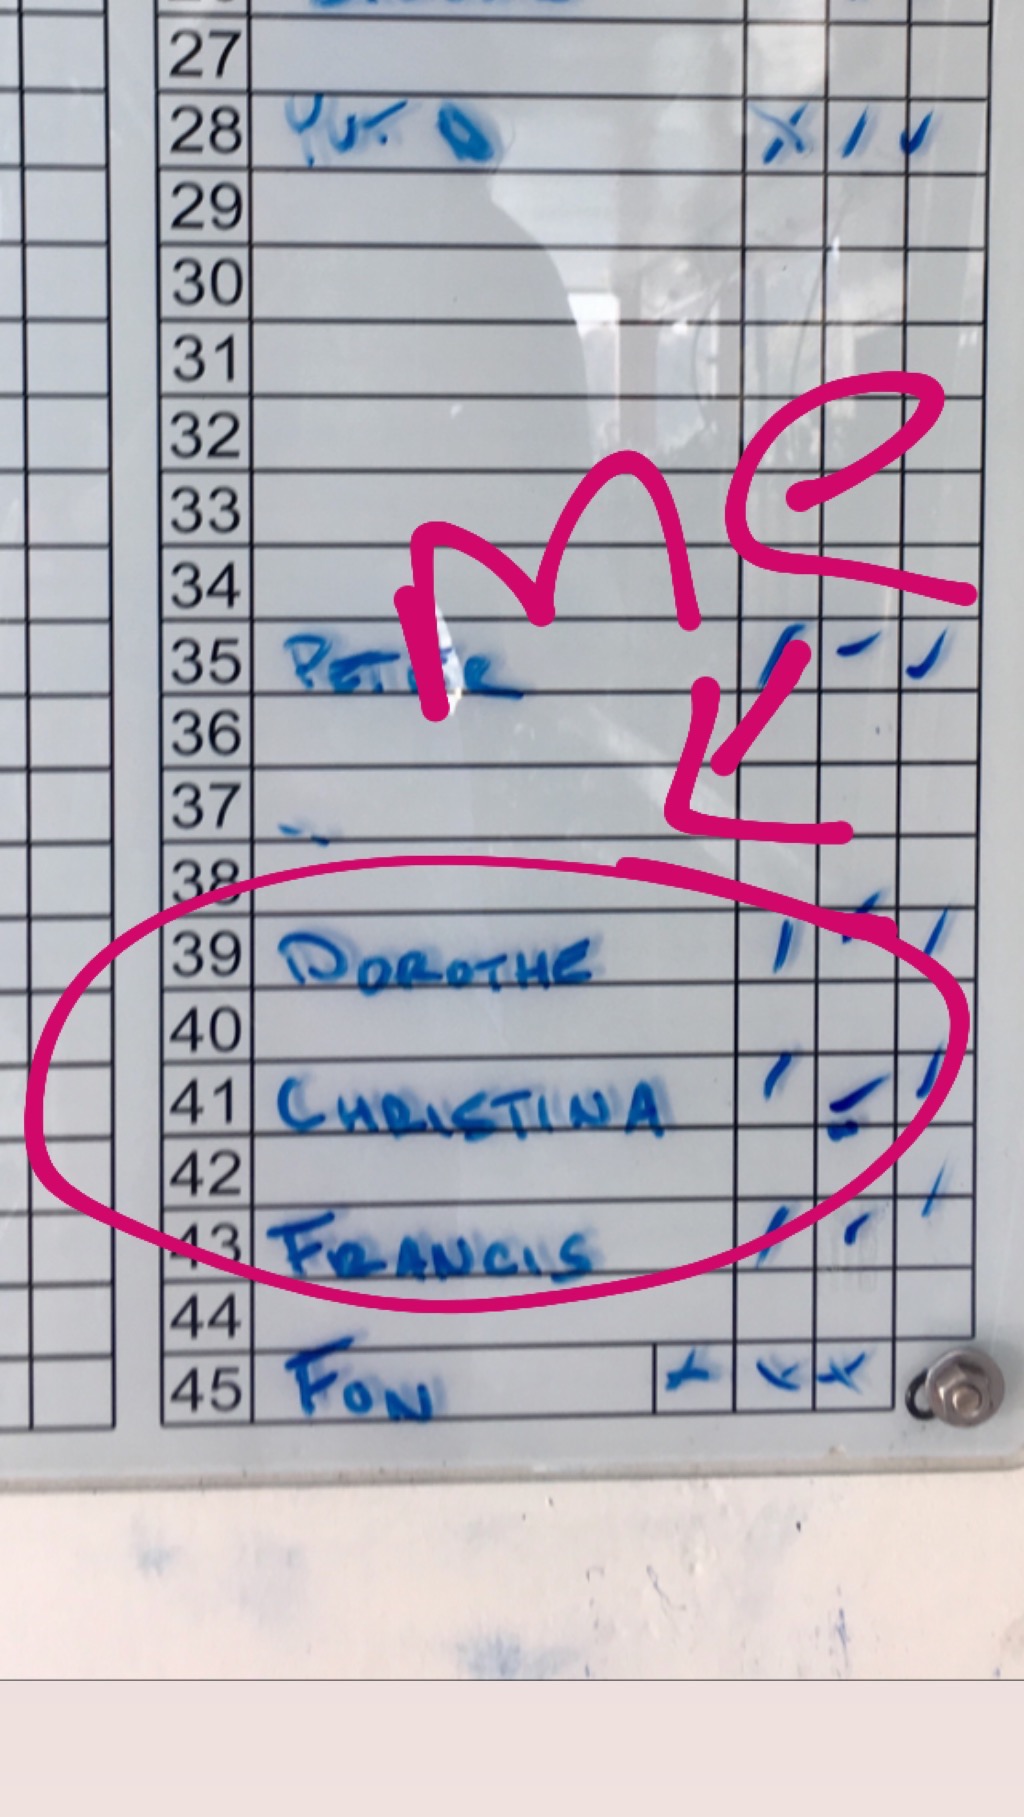 27
28
29
30
31
32
33
34
me
35 PETER
36
37
38
39 DOROTHE
40
41 CHRISTINA
42
43 FRANCIS
44
45 FON